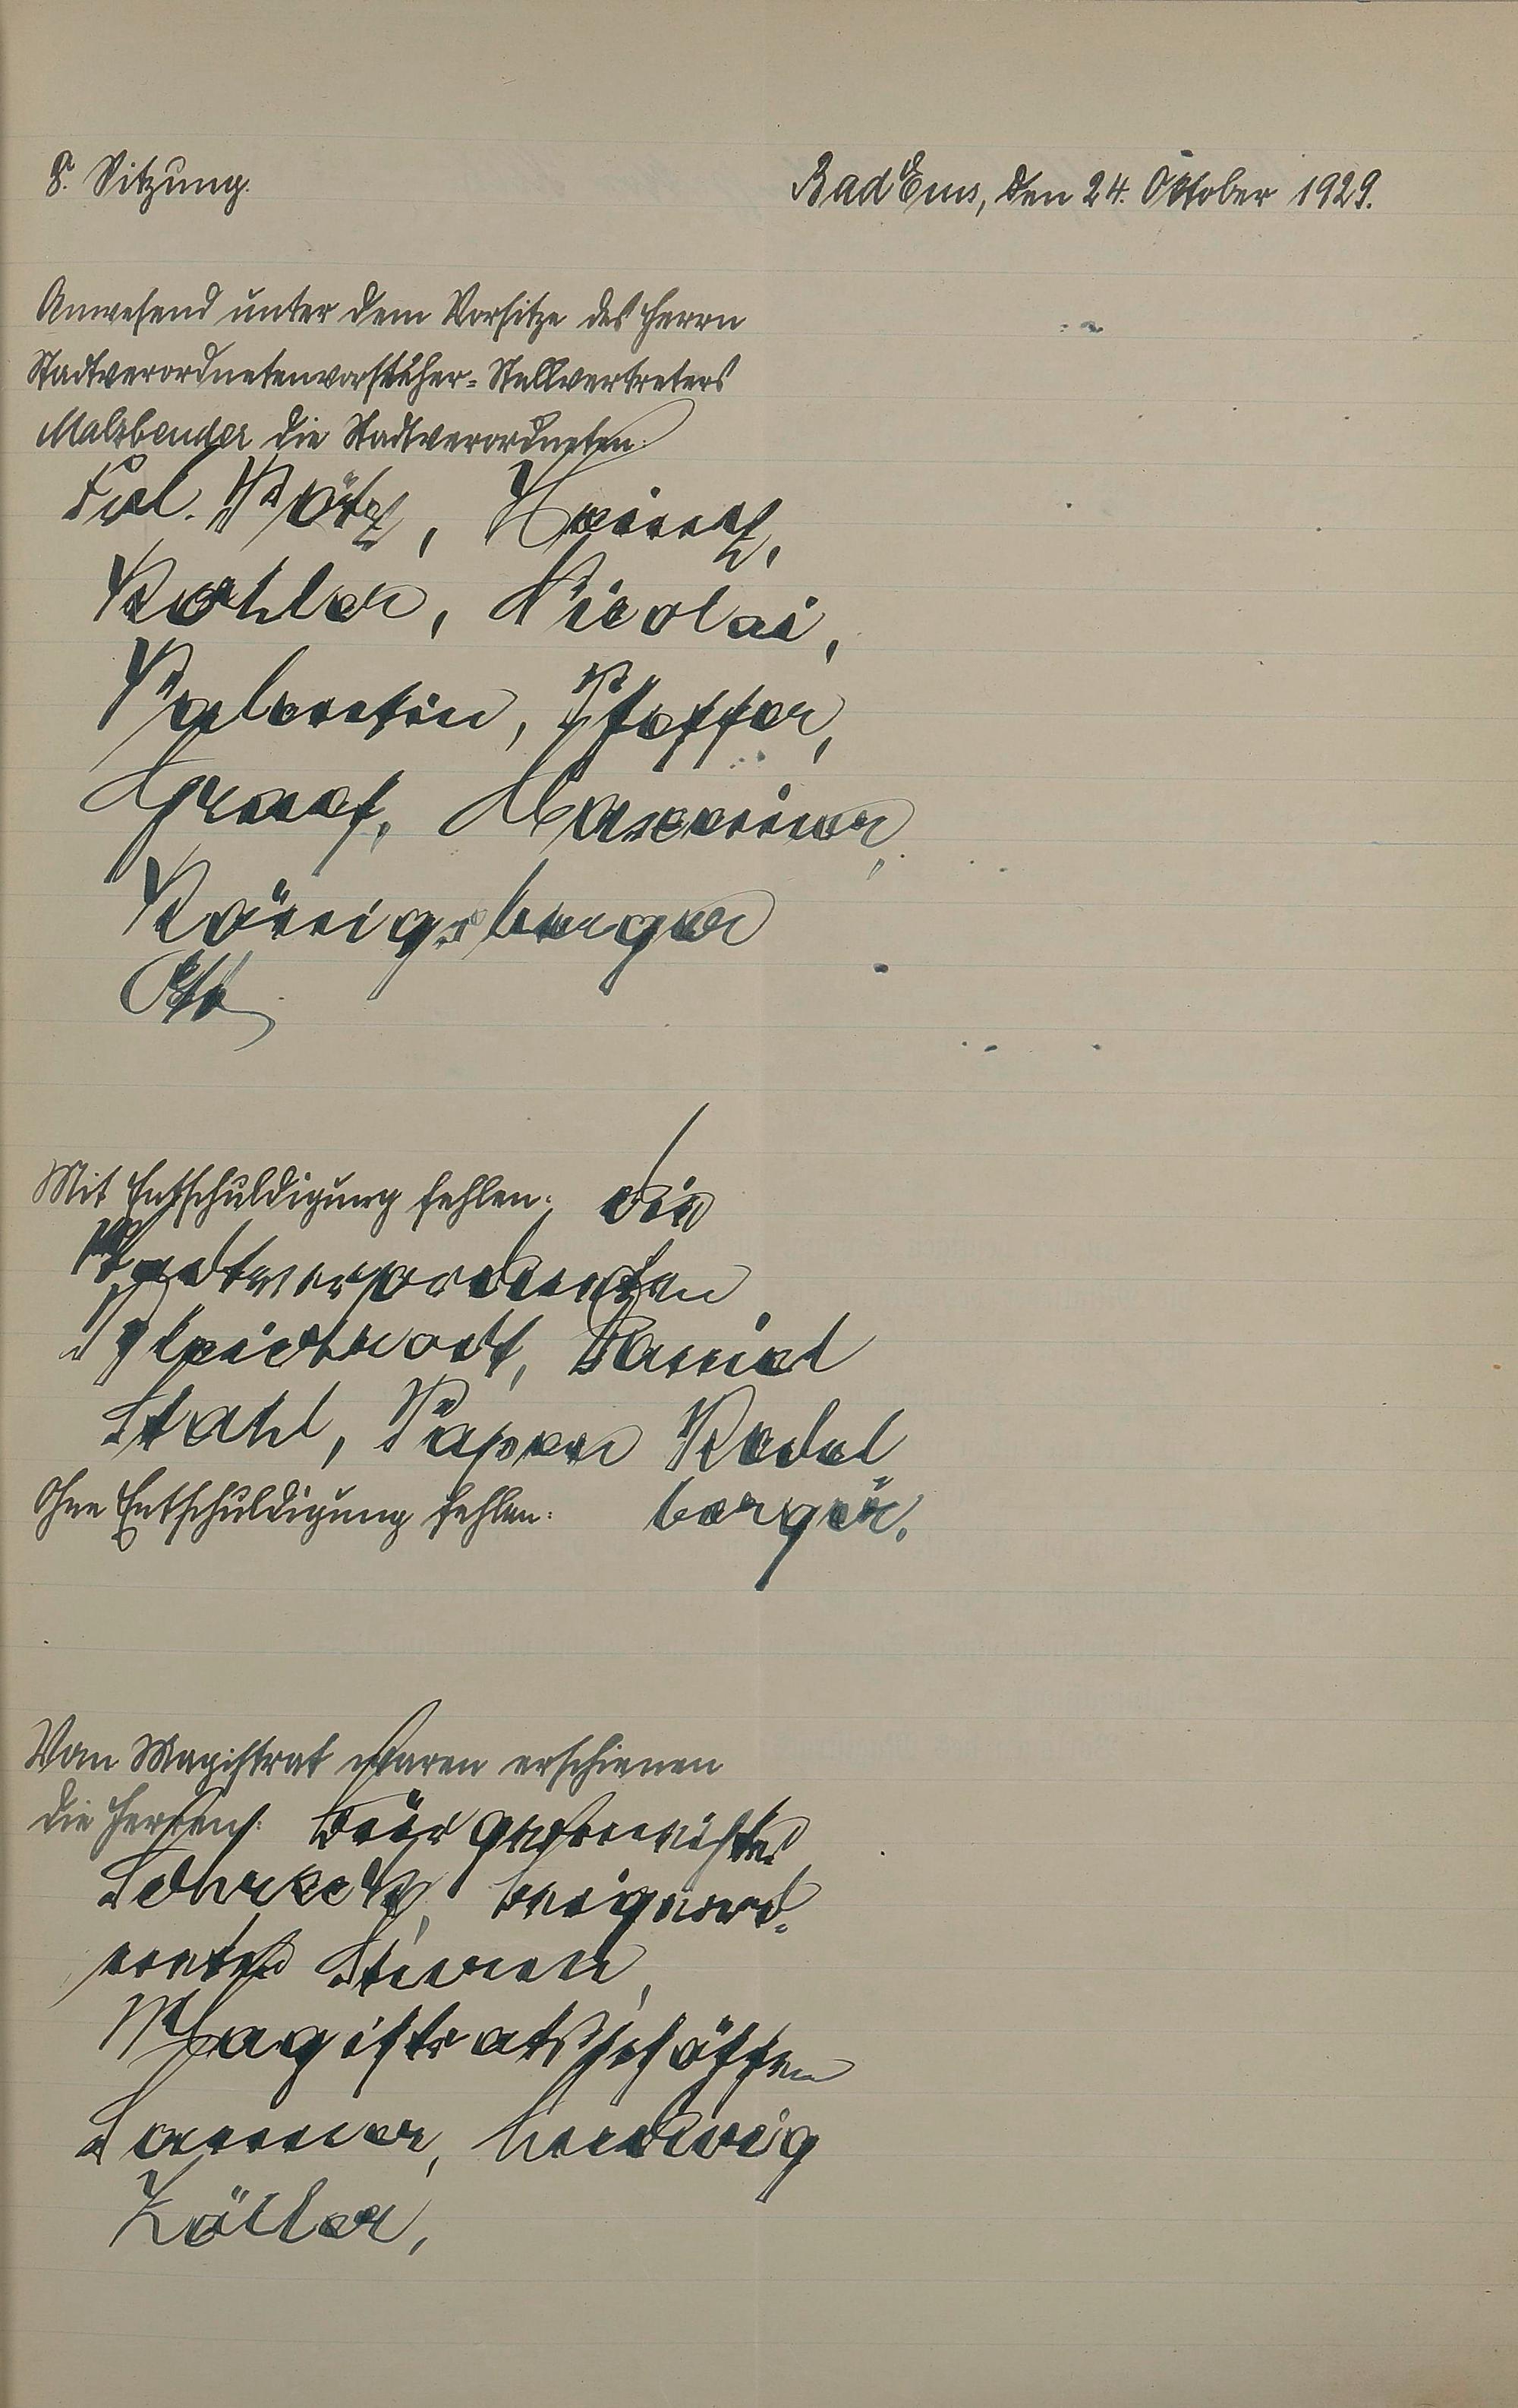 8. Sitzung.
Bad Ems, den 24. Oktober 1929.
Anwesend unter dem Vorsitze des Herrn
Stadtverordnetenvorsteher-Stellvertreters
Malzbender die Stadtverordneten:
Frl. Pötz, Heintz,
Kohler, Nicolai,
Valentin, Pfeffer,
Graef, Maxeiner,
Königsberger
Ott
Mit Entschuldigung fehlen: die
Stadtverordneten
Daniel
Stahl, Pasper Kadel-
Ohne Entschuldigung fehlen: berger.
Vom Magistrat waren erschienen
die Herren: Bürgermeister
Schreck, Beigeord-
neter Stemmler,
Magistratsschöffen
Sommer, Ludwig
Zöller,